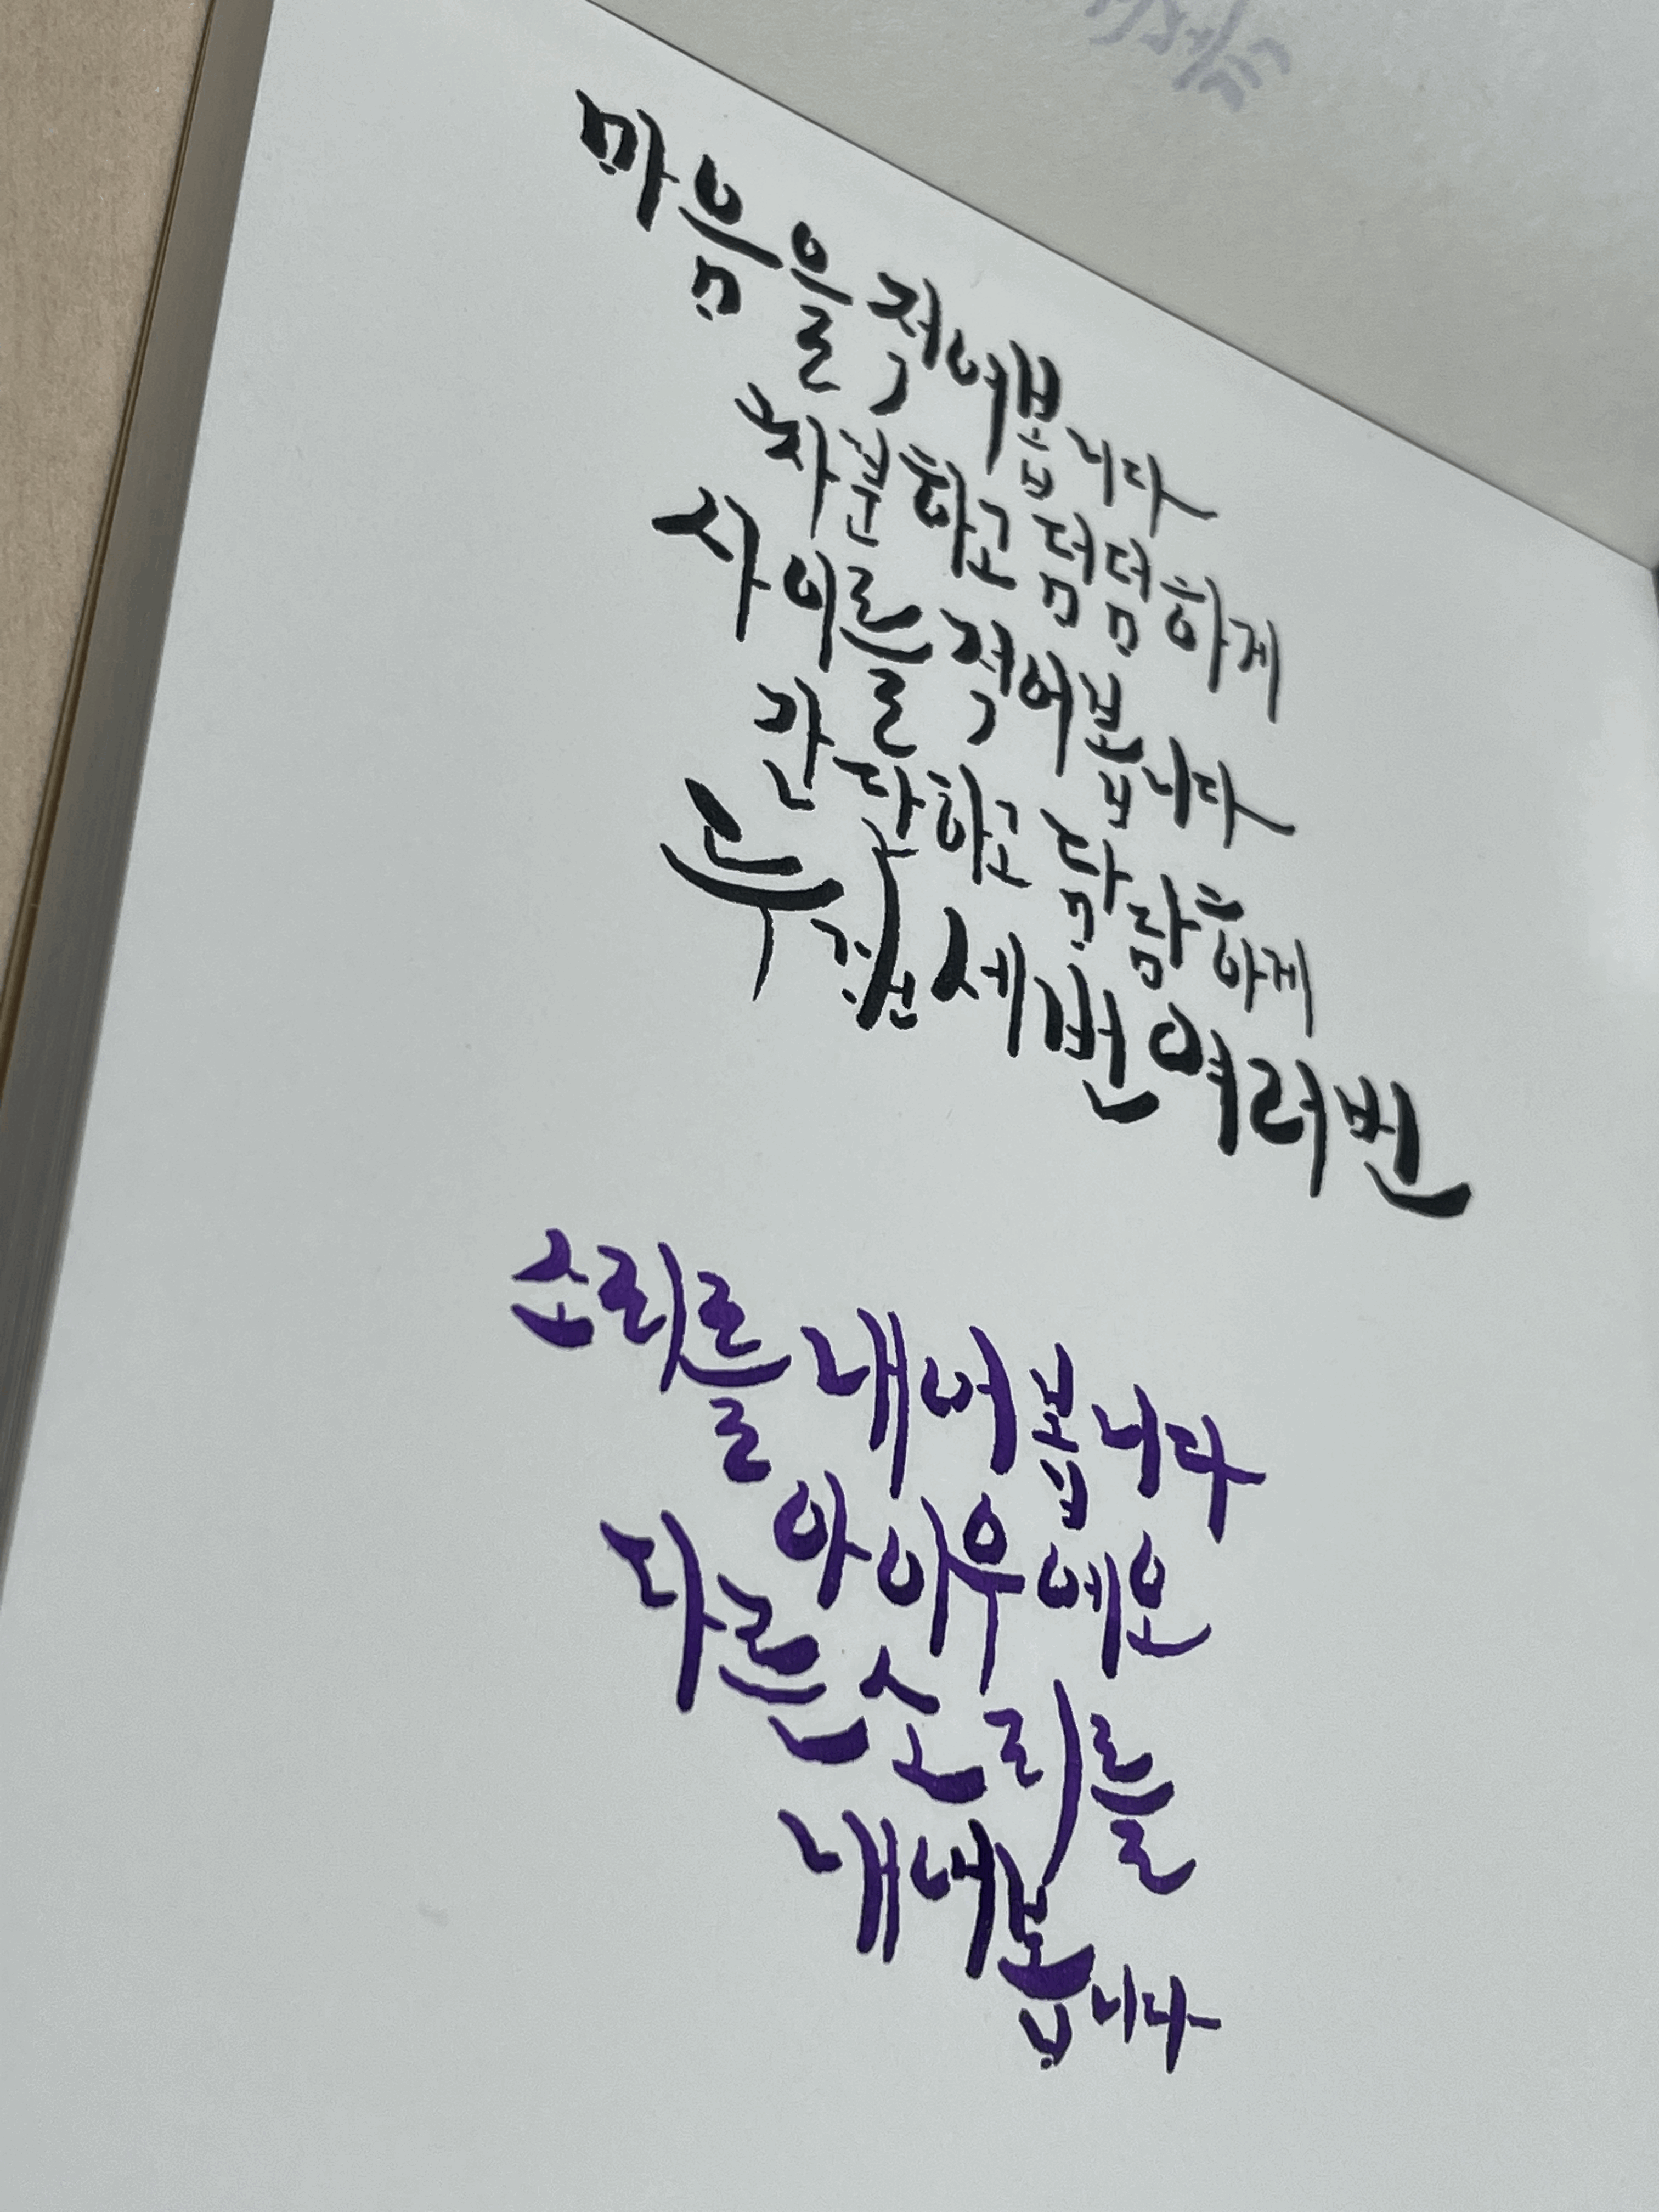 마음을 적어봅니다
차분하고 덤덤하게
사이를 적어봅니다
간단하고 담담하게
두 번 세 번 여러 번
소리를 내어 봅니다
아 이 우 에 오
다른 소리를
내어봅니다